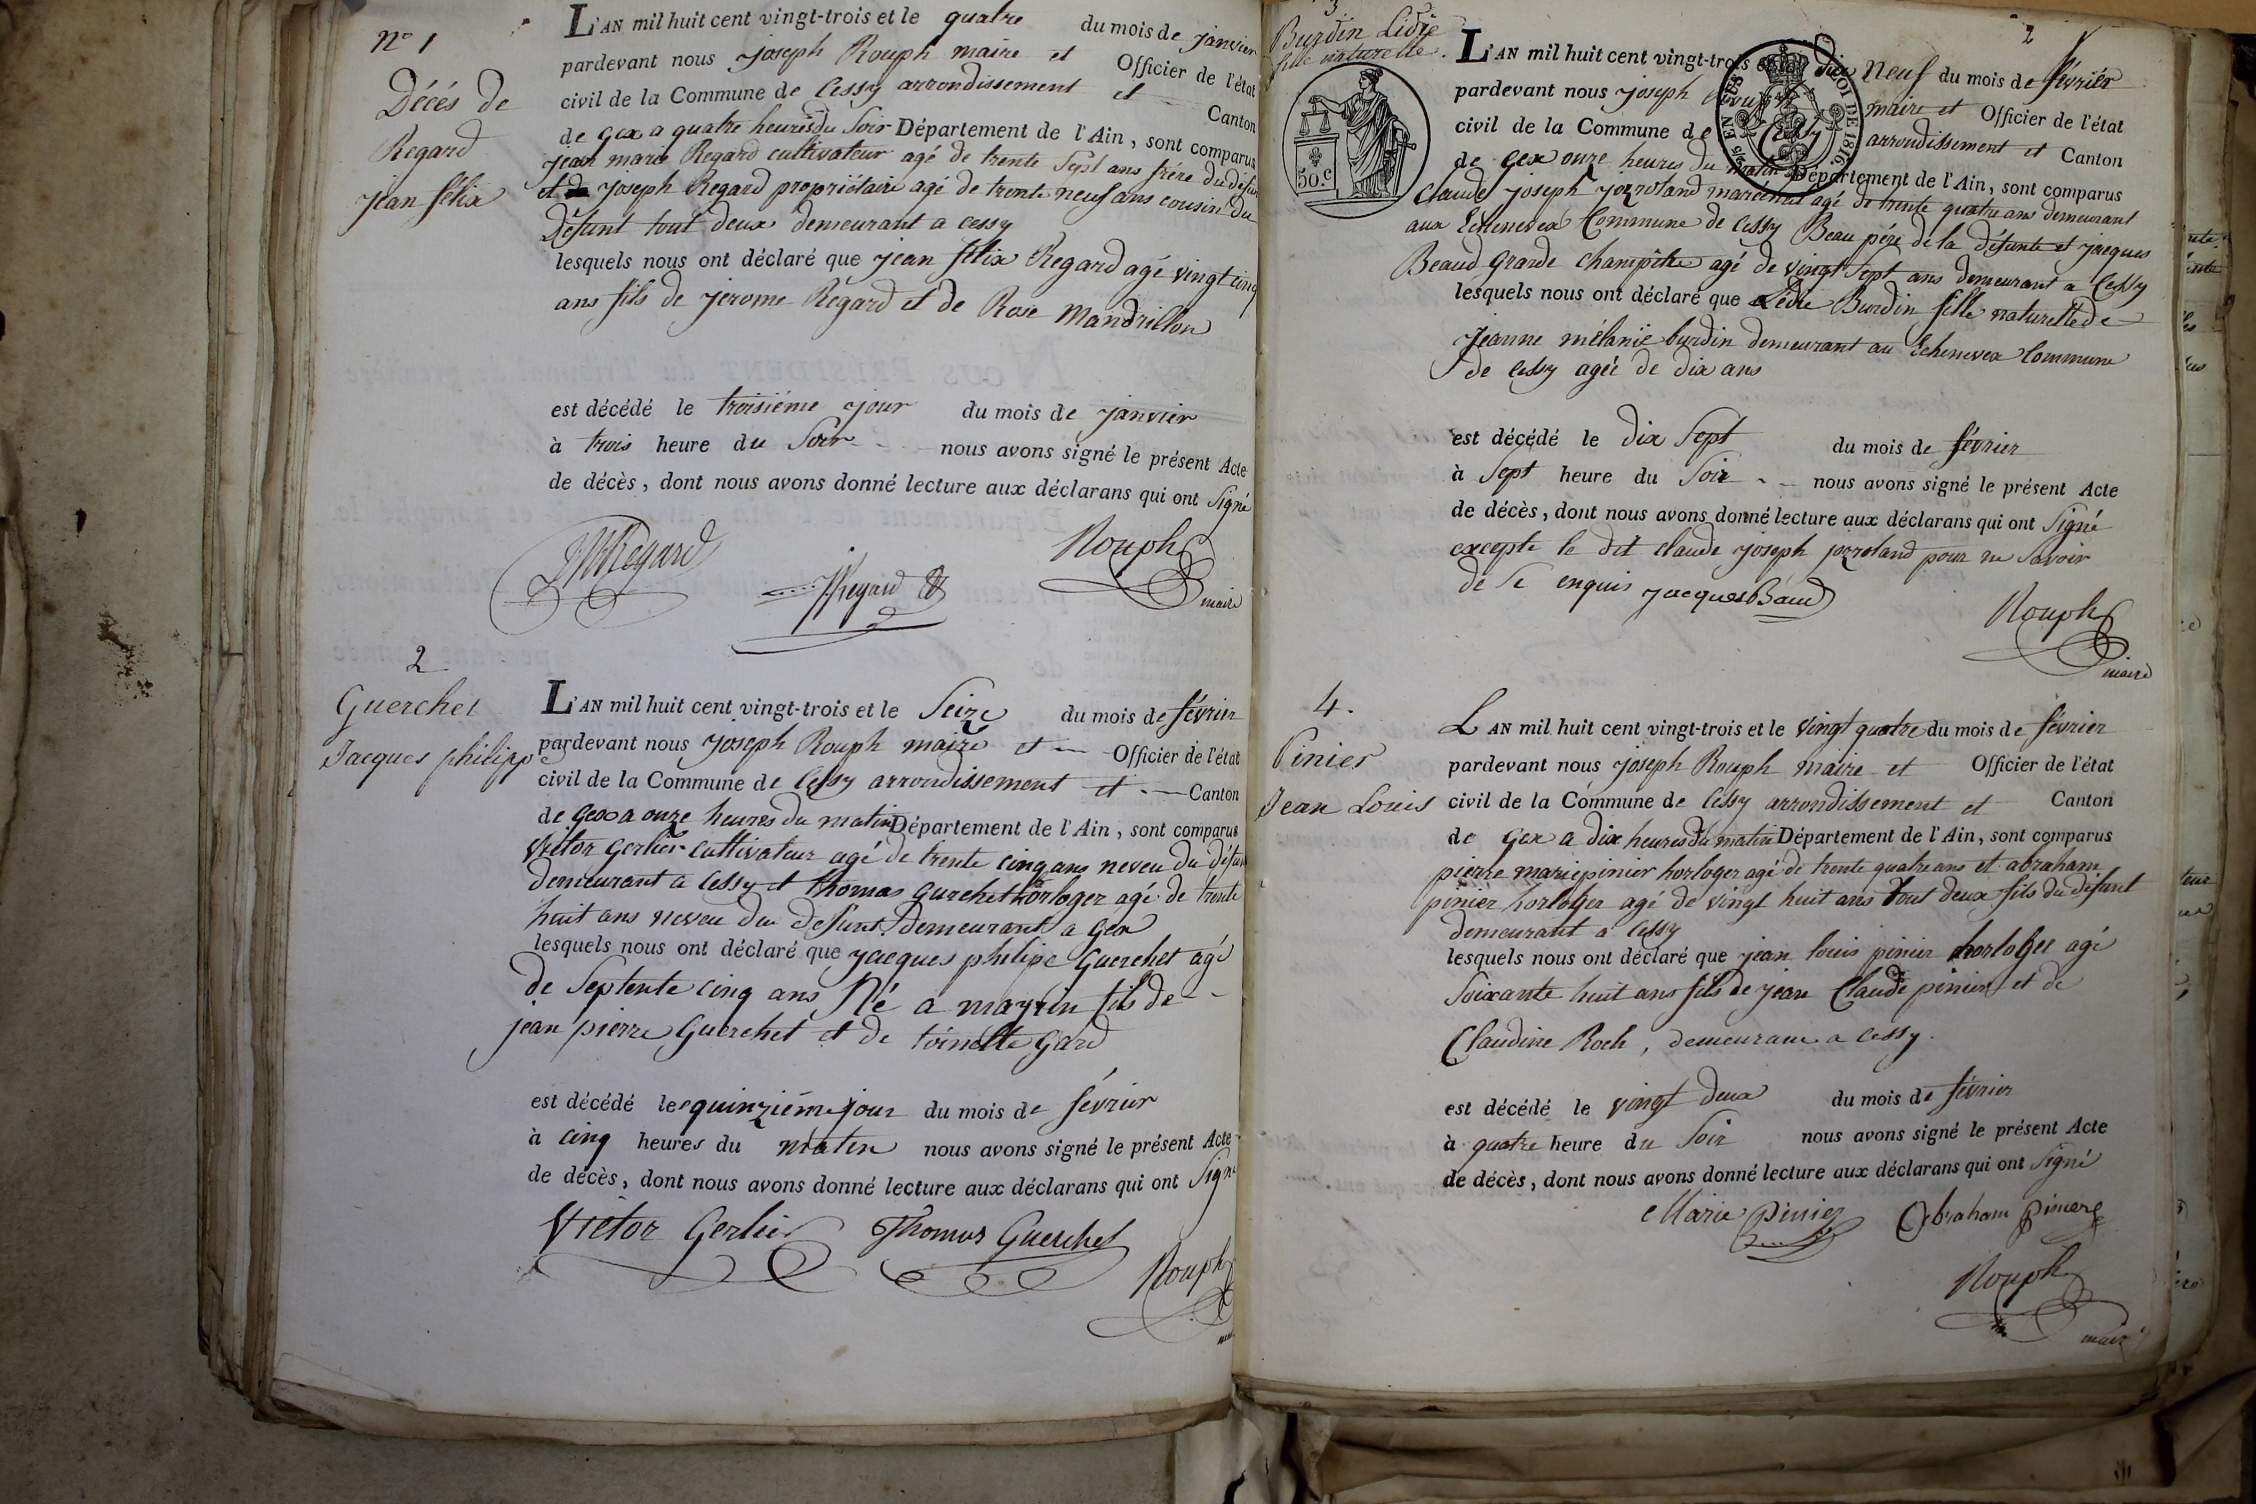 N° 1
Décés de
Regard
jean félix
L'AN mil huit cent vingt-trois et le quatre du mois de janvier
pardevant nous joseph Rouph maire et Officier de l'état
civil de la Commune de Cessy arrondissement et Canton
de gex a quatre heures du soir Département de l'Ain, sont comparus
jean marie Regard cultivateur agé de trente sept ans frére du défunt
et joseph Regard propriétaire agé de trente neuf ans cousin du
Défunt tout deux demeurant a cessy
lesquels nous ont déclaré que jean félix Regard agé vingt cinq
ans fils de jerome Regard et de Rose Mandrillon
est décédé le troisiéme jour du mois de janvier
à trois heure du soir nous avons signé le présent Acte
de décès, dont nous avons donné lecture aux déclarans qui ont signé
JMRegard
JRegard
Rouph
maire
2
Guerchet
Jacques philippe
L'AN mil huit cent vingt-trois et le seize du mois de février
pardevant nous joseph Rouph maire et Officier de l'état
civil de la Commune de Cessy arrondissement et Canton
de gex a onze heures du matin Département de l'Ain, sont comparus
victor gerlier cultivateur agé de trente cinq ans neveu du défunt
demeurant a Cessy et thomas gurchet horloger agé de trente
huit ans neveu du defunt demeurant a gex
lesquels nous ont déclaré que jacques philipe Guerchet agé
de septente cinq ans Né a mayrin fils de
jean pierre Guerchet et de toinette gard
est décédé le quinziéme jour du mois de février
à cinq heures du matin nous avons signé le présent Acte
de décès, dont nous avons donné lecture aux déclarans qui ont signé
Victor Gerlier Thomas Guerchet
Rouph
3
Burdin Lidie
fille naturelle.
50.c
2
L'AN mil huit cent vingt-trois et le dix Neuf du mois de février
pardevant nous joseph Rouph maire et Officier de l'état
civil de la Commune de Cessy arrondissement et Canton
de gex onze heures du matin Département de l'Ain, sont comparus
Claude joseph jozroland marechal agé de trente quatre ans demeurant
aux Echenevex Commune de Cessy Beau pére de la défunte et jacques
Beaud garde champêtre agé de vingt sept ans demeurant a Cessy
lesquels nous ont déclaré que Lédie Burdin fille naturelle de
jeanne mélanie burdin demeurant au Echenevex Commune
de Cessy agée de dix ans
est décédé le dix sept du mois de février
à sept heure du soir nous avons signé le présent Acte
de décès, dont nous avons donné lecture aux déclarans qui ont signé
excepté le dit claude joseph jozroland pour ne savoir
de ce enquis jacques Baud
Rouph
maire
4.
Pinier
Jean Louis
L'AN mil huit cent vingt-trois et le vingt quatre du mois de février
pardevant nous joseph Rouph maire et Officier de l'état
civil de la Commune de Cessy arrondissement et Canton
de gex a dix heures du matin Département de l'Ain, sont comparus
pierre marie pinier horloger agé de trente quatre ans et abraham
pinier horloger agé de vingt huit ans tout deux fils du défunt
demeurant a Cessy
lesquels nous ont déclaré que jean louis pinier horloger agé
soixante huit ans fils de jean Claude pinier et de
Claudine Roch, demeurant a Cessy.
est décédé le vingt deux du mois de février
à quatre heure du soir nous avons signé le présent Acte
de décès, dont nous avons donné lecture aux déclarans qui ont signé
Marie Pinier Abraham Pinier
Rouph
maire